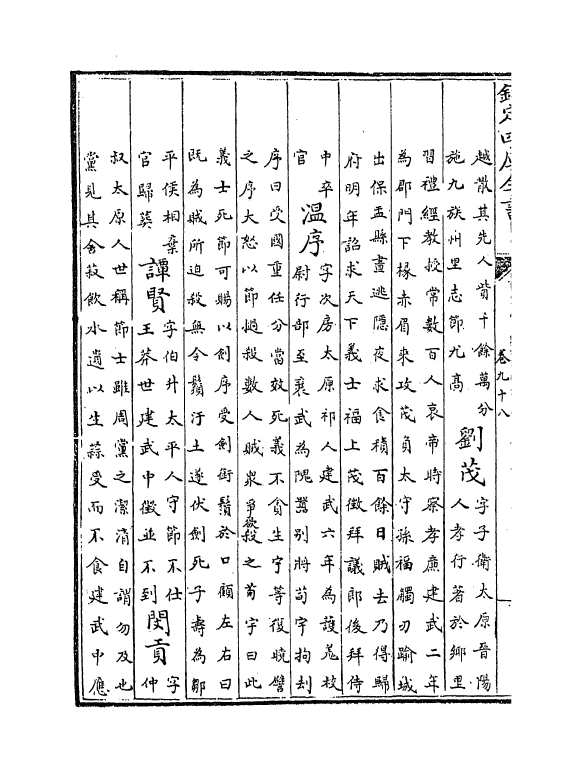 欽定四庫全書
卷九十八
越散其先人貲千餘萬分
施九族州里志節尤高
劉茂
字子衛太原晉陽
人孝行著於鄉里
習禮經教授常數百人哀帝時察孝廉建武二年
為郡門下掾赤眉來攻茂負太守孫福觸刃踰城
出保盂縣晝逃隱夜求食積百餘日賊去乃得歸
府明年詔求天下義士福上茂徵拜議郎後拜侍
中卒
官
溫序
字次房太原祁人建武六年為護羌校
尉行部至襄武為隗囂別將苟宇拘刦
序曰受國重任分當效死義不貪生宇等復曉譬
之序大怒以節撾殺數人賊衆爭欲殺之苟宇曰此
義士死節可賜以劍序受劍銜鬚於口顧左右曰
既為賊所迫殺無令鬚汙土遂伏劍死子壽為鄒
平侯相棄
官歸葬
譚賢
字伯升太平人守節不仕
王莽世建武中徵並不到
閔貢
字
仲
叔太原人世稱節士雖周黨之潔清自謂勿及也
黨見其舍菽飲水遺以生蒜受而不食建武中應